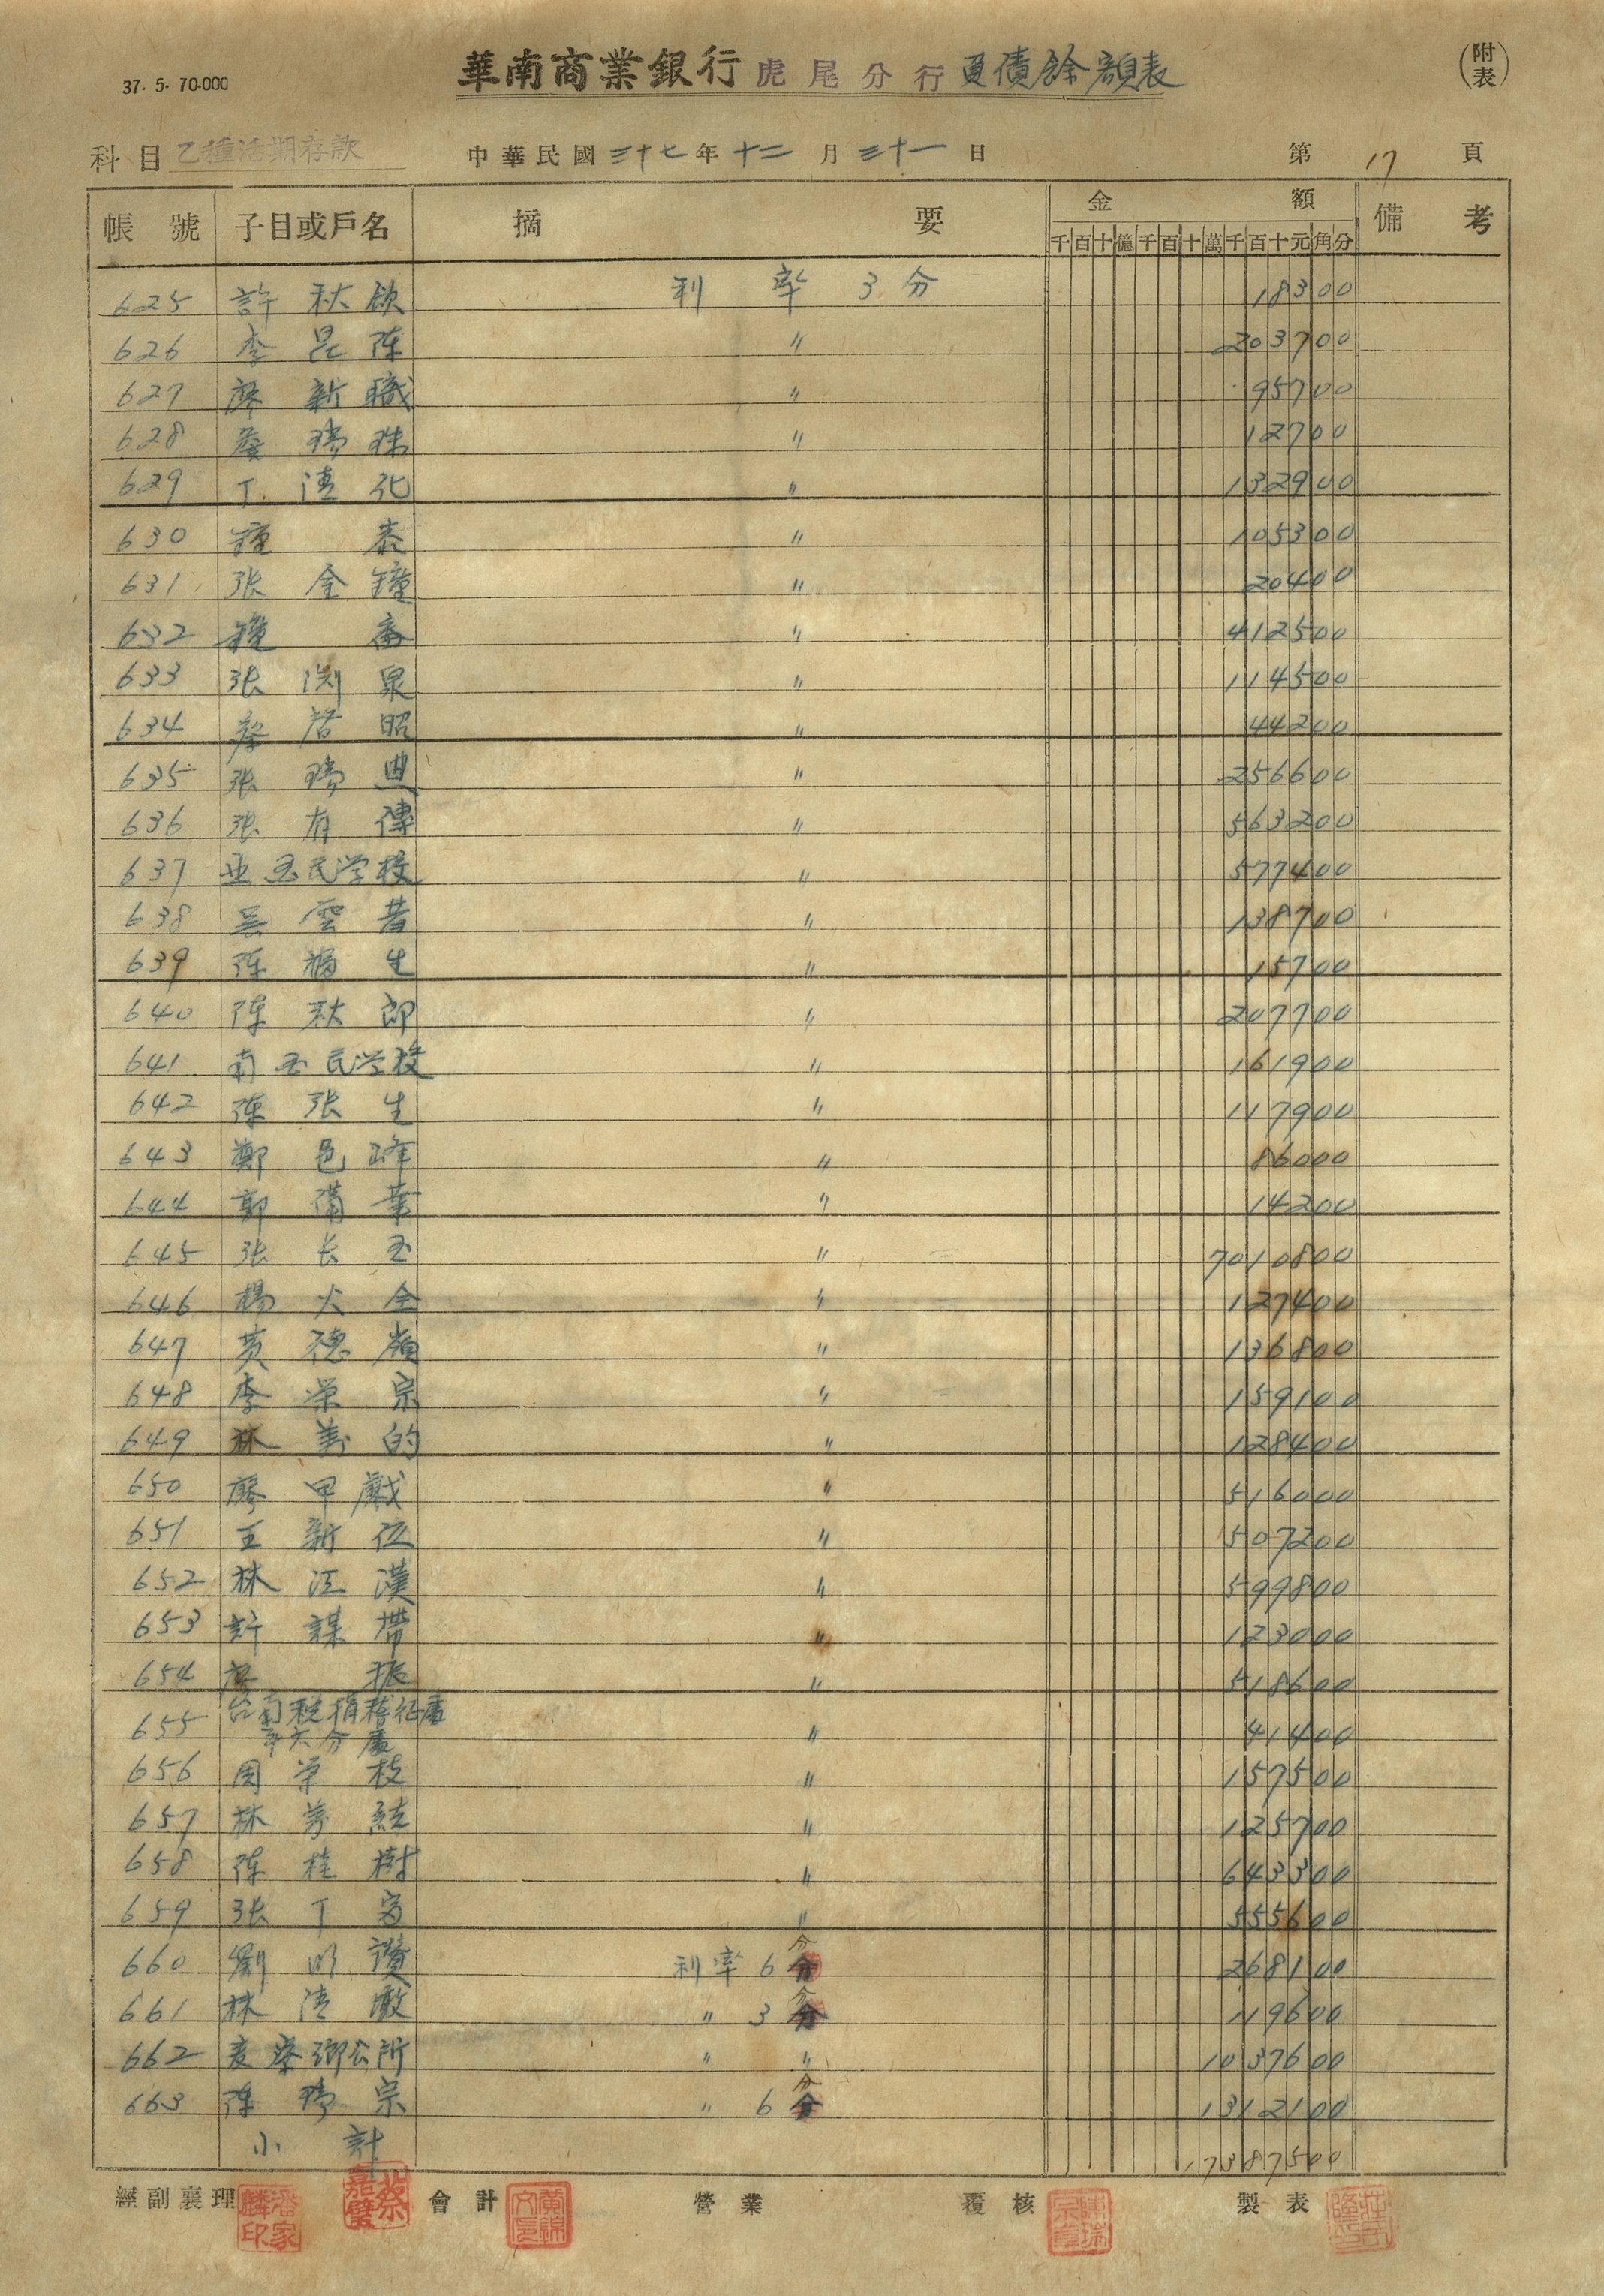 37. 5. 70.000
華南商業銀行 虎尾分行 負債餘額表
(附表)
科目 乙種活期存款 中華民國三十七年十二月三十一日 第17頁
帳號 子目或戶名 摘要 金額 備考
千百十億千百十萬千百十元角分
625 許秋欽 利率3分 18300
626 李昆陳 〃 203700
627 廖新職 〃 95700
628 蔡瑞珠 〃 12700
629 丁清化 〃 132900
630 鐘泰 〃 105300
631 张金鐘 〃 20400
632 鐘 〃 412500
633 张渕泉 〃 114500
634 蔡啓昭 〃 44200
635 张瑞典 〃 256600
636 张有傳 〃 563200
637 亚国民学校 〃 577400
638 吴雲昔 〃 138700
639 陳福生 〃 15700
640 陳秋郎 〃 207700
641 南国民学校 〃 161900
642 陳张生 〃 117900
643 鄭邑峰 〃 86000
644 郭備業 〃 14200
645 张长玉 〃 7010800
646 楊火全 〃 127400
647 黄德 〃 136800
648 李榮宗 〃 159100
649 林萬的 〃 128400
650 廖甲戲 〃 516000
651 王新位 〃 507200
652 林江漢 〃 599800
653 許謀帶 〃 123000
654 廖振 〃 518600
655 台南税捐稽征處
斗六分處 〃 41400
656 周榮枝 〃 157500
657 林芳結 〃 125700
658 陳桂樹 〃 643300
659 张丁富 〃 555600
660 劉明讚 利率6分 268100
661 林清 〃 3分 119600
662 麦寮鄉公所 〃 〃 1037600
663 陳瑞宗 〃 6分 1312100
小計 17387500
經副襄理 會計 營業 覆核 製表
潘家麟印
蔡嘉璧